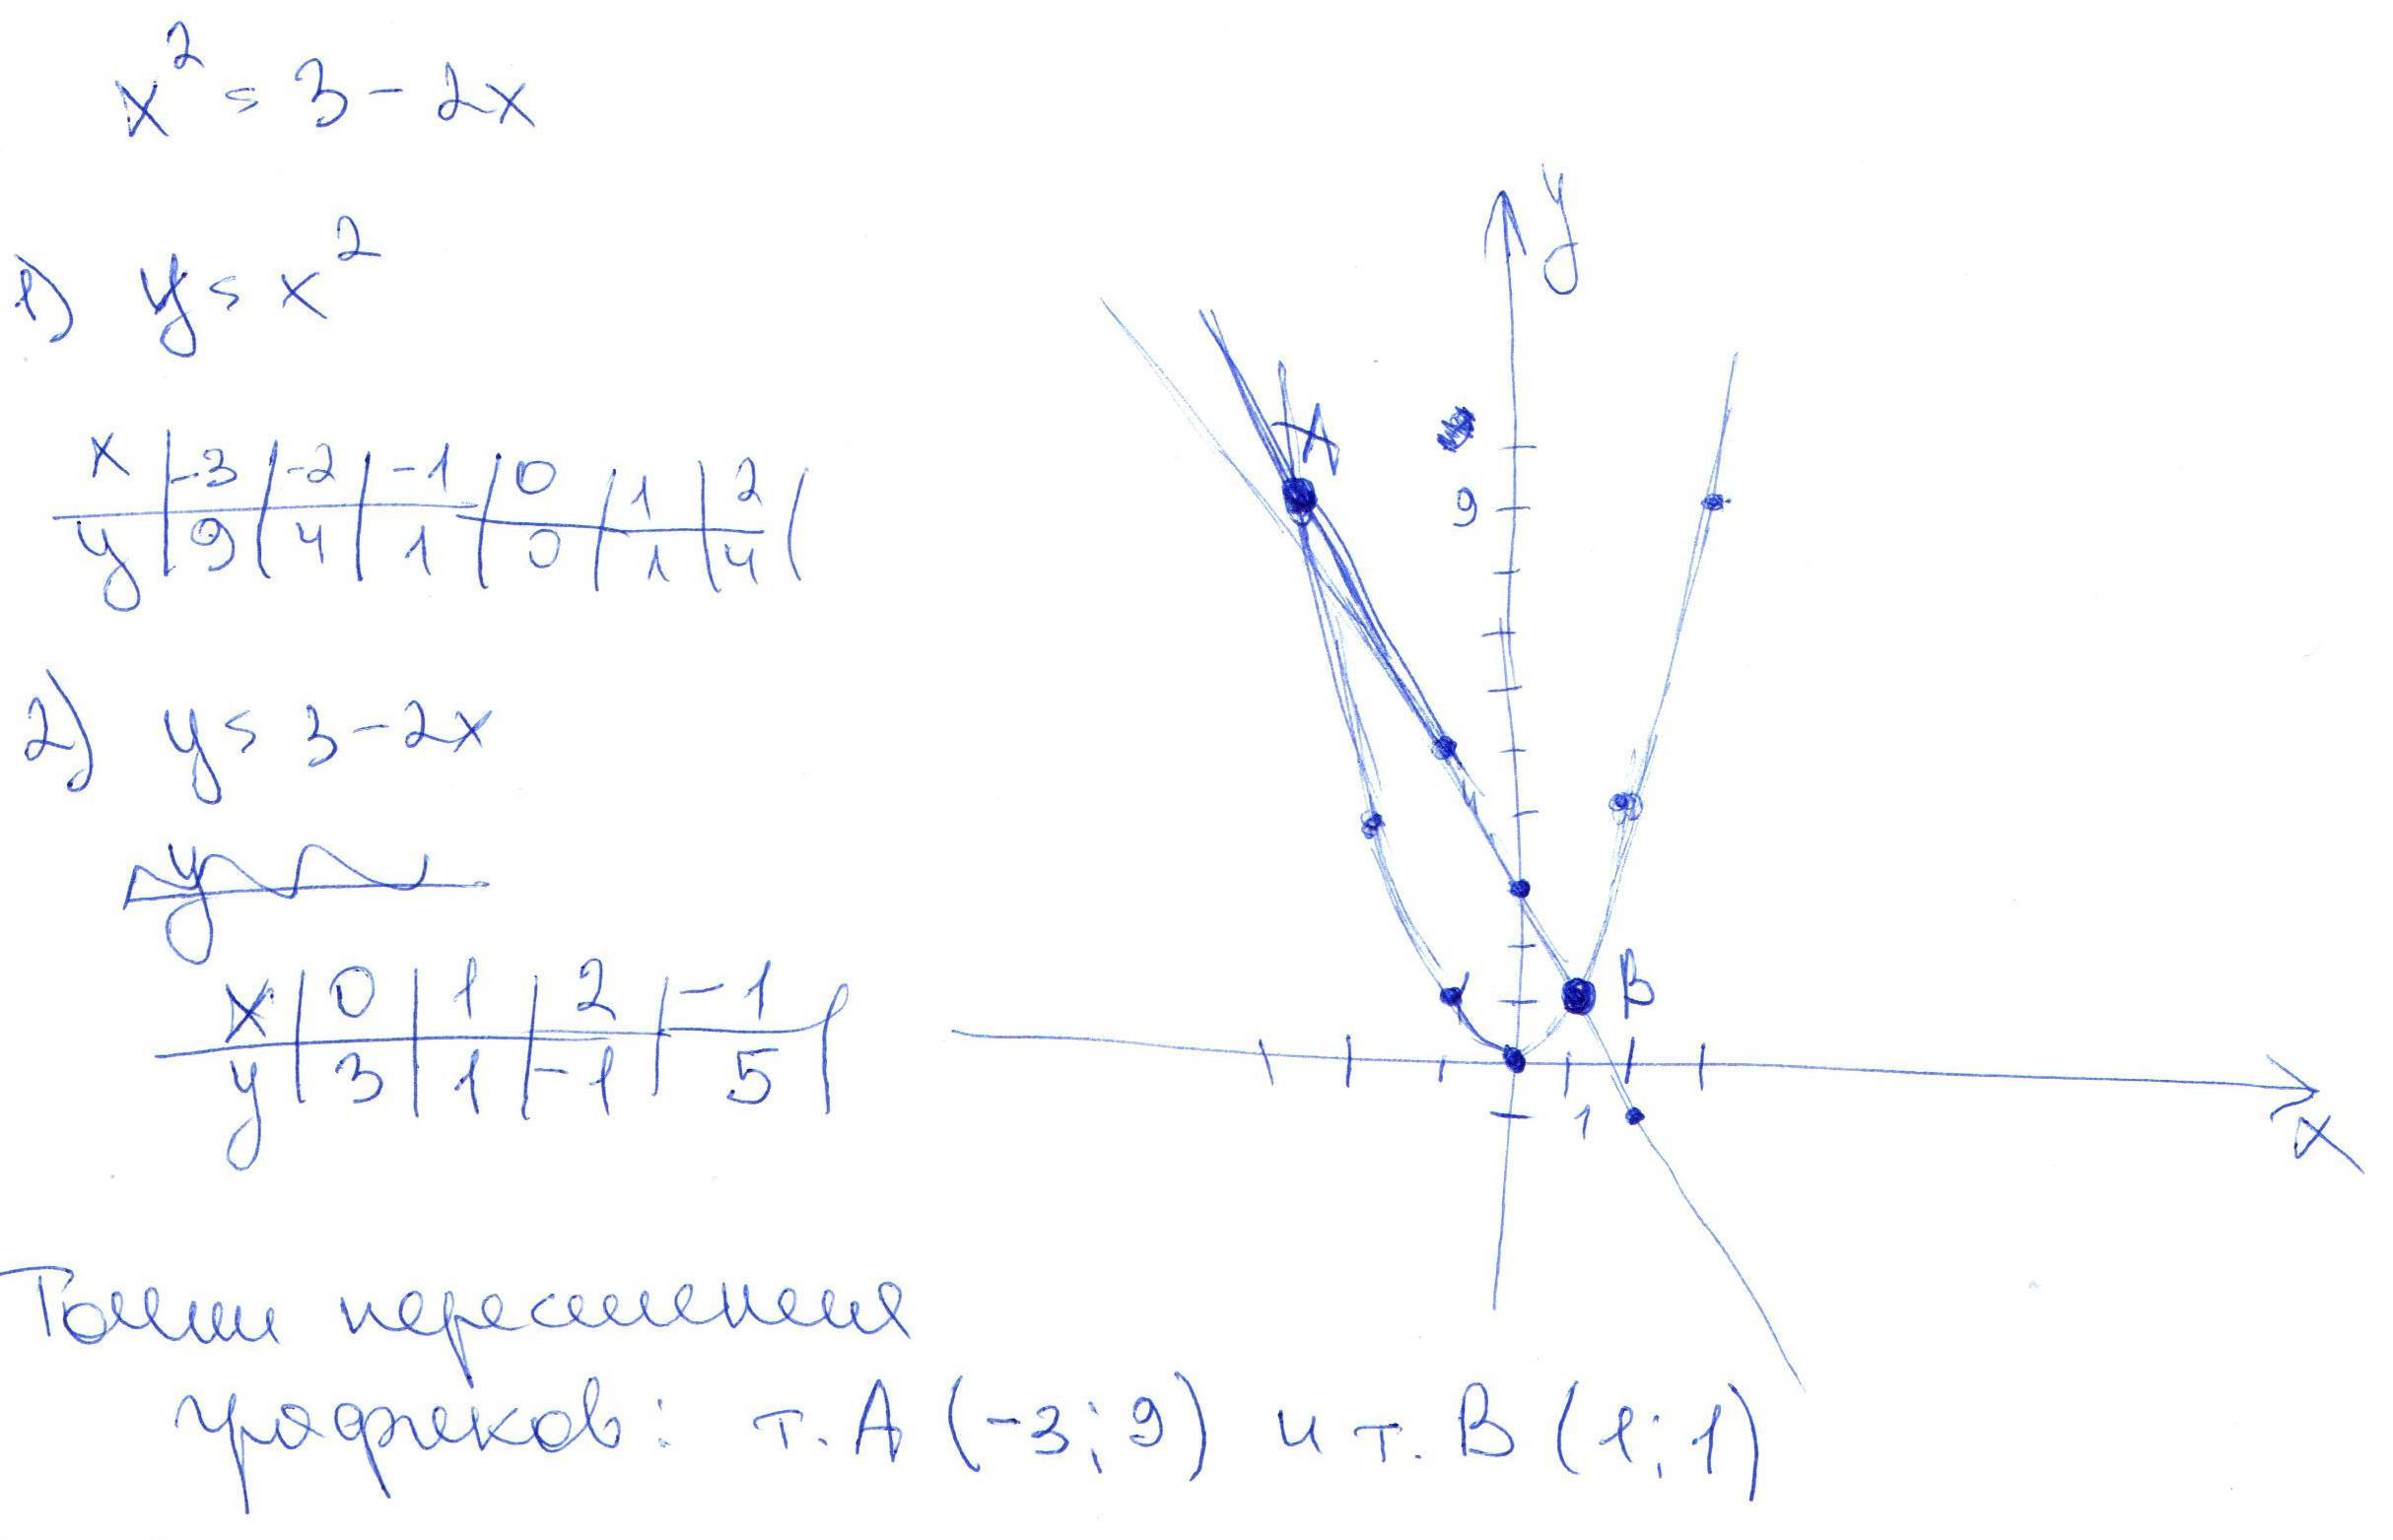 x² = 3 - 2x
1) y = x²
x | -3 | -2 | -1 | 0 | 1 | 2 |
y | 9 | 4 | 1 | 0 | 1 | 4 |
2) y = 3 - 2x
y
x | 0 | 1 | 2 | -1 |
y | 3 | 1 | -1 | 5 |
y
A
9
B
1
x
Точки пересечения
графиков: т. A (-3; 9) и т. B (1; 1)